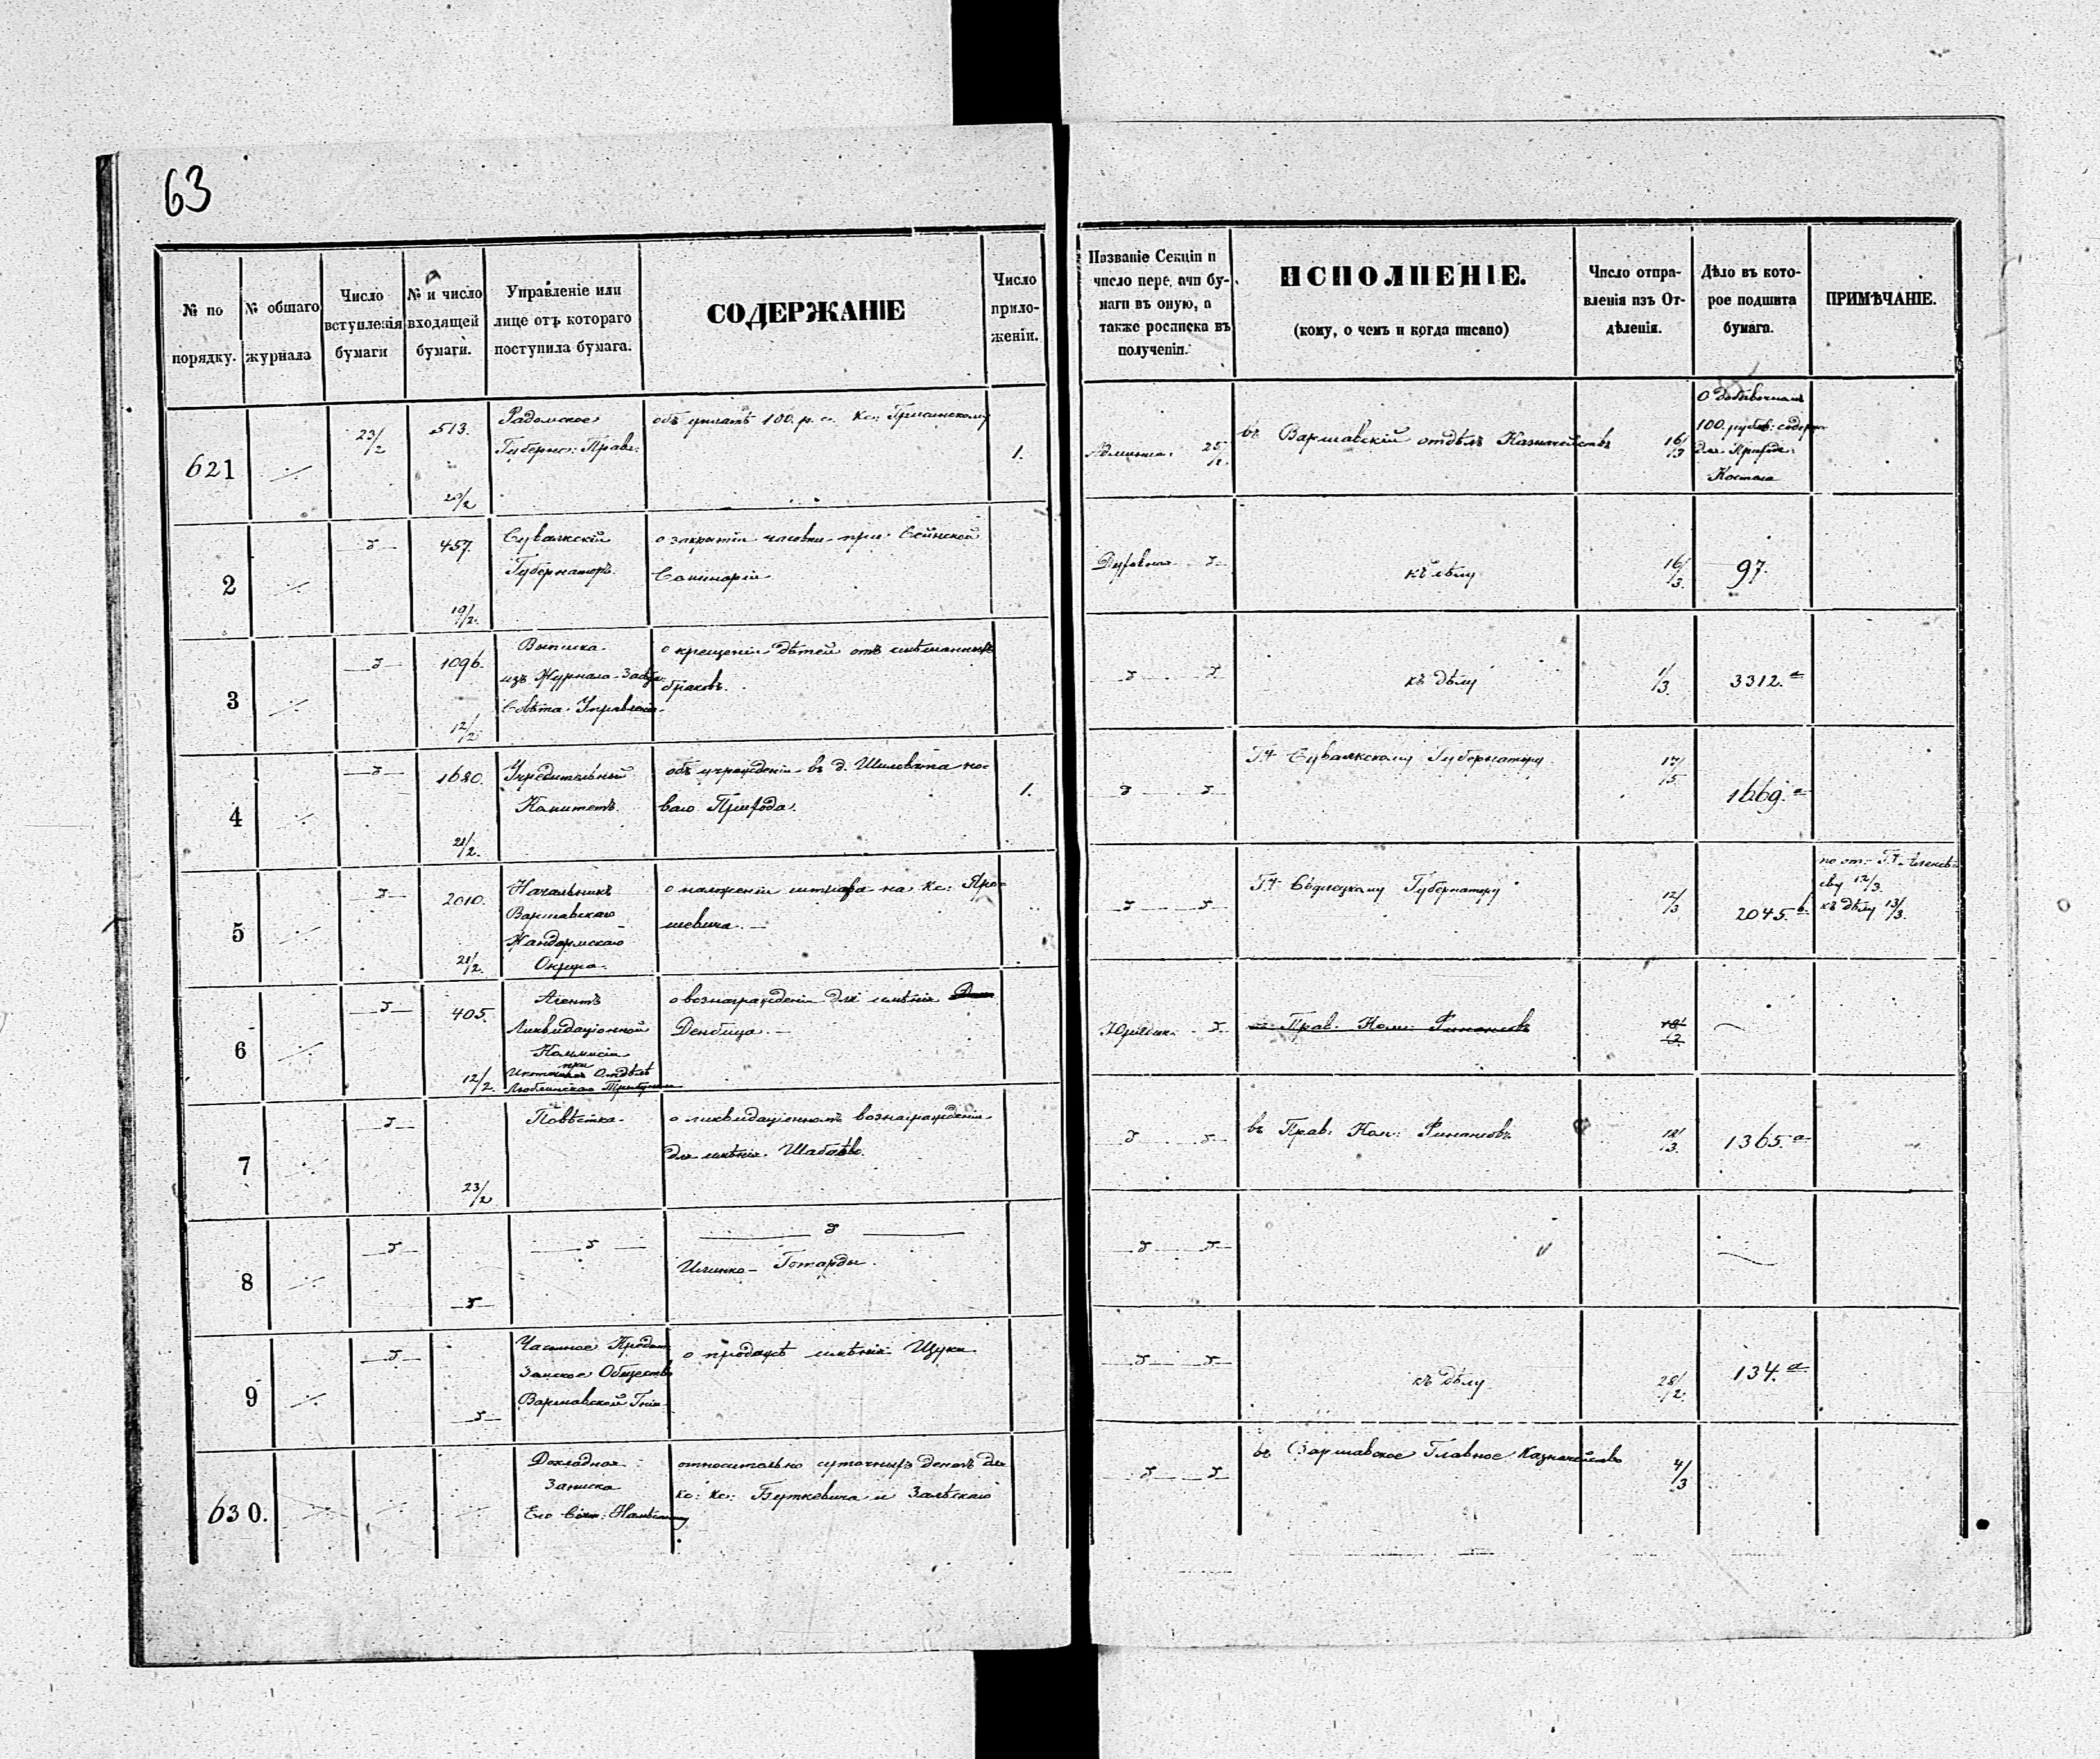 63
№ по
порядку.
№ общаго
журнала
Число
вступленія
бумаги
№ и число
входящей
бумаги.
Управленіе или
лице отъ котораго
поступила бумага.
СОДЕРЖАНІЕ
Число
прило-
женій.
Названіе Секціи и
число пере ачи бу-
маги въ оную, а
также росписка въ
полученіи.
ИСПОЛНЕНІЕ.
(кому, о чемъ и когда писано)
Число отпра-
вленія изъ От-
дѣленія.
Дѣло въ кото-
рое подшита
бумага.
ПРИМѢЧАНІЕ.
621
23/2
513.
23/2
Радомское
Губернс: Правл:
объ уплатѣ 100. р. с. Кс:
1.
25/2.
въ Варшавскій отдѣлъ Казначейства
16/3
О добавочномъ
100. рублев: содерж
для
Костела
2
457.
19/2.
Сувалкскій
Губернаторъ.
о закрытіи часовни при Сейнской
Семинаріи
Духовная
къ дѣлу
16/3.
97.
3
1096.
12/2.
Выписка
изъ Журнала
Совѣта Управленія
о крещеніи дѣтей отъ смѣшанныхъ
браковъ.
къ дѣлу
1/3.
3312. а
4
1680.
21/2.
Учредительный
Комитетъ.
объ учрежденіи въ д. Шиловѣта но-
ваго Прихода.
1.
Г. Сувалкскому Губернатору
17/5
1669. а
5
2010.
21/2.
Начальникъ
Варшавскаго
Жандармскаго
Округа.
о наложеніи штрафа на Кс: Яро-
шевича. —
Г. Сѣдлецкому Губернатору
12/3
2045. b
12/3.
къ дѣлу 13/3.
6
405.
12/2.
Агентъ
Ликвидаціонной
Коммисіи
при
Ипотечномъ Отдѣлѣ
Люблинскаго Трибунала
о вознагражденіи для имѣнія
Дембица. —
Юридич.
Прав. Ком: Финансовъ
7
23/2
Повѣстка.
о ликвидаціонномъ вознагражденіи
для имѣнія
въ Прав. Ком: Финансовъ
12/3.
1365. а
8
9
Частное
Земское Общество
Варшавской Губ:
о продажѣ имѣнія Щуки
къ дѣлу
28/2
134. а
630.
Докладная
Записка
Его Сіят: Намѣстнику
относительно суточныхъ денегъ для
Кс: Кс: Буткевича и Залѣскаго
въ Варшавское Главное Казначейство
4/3